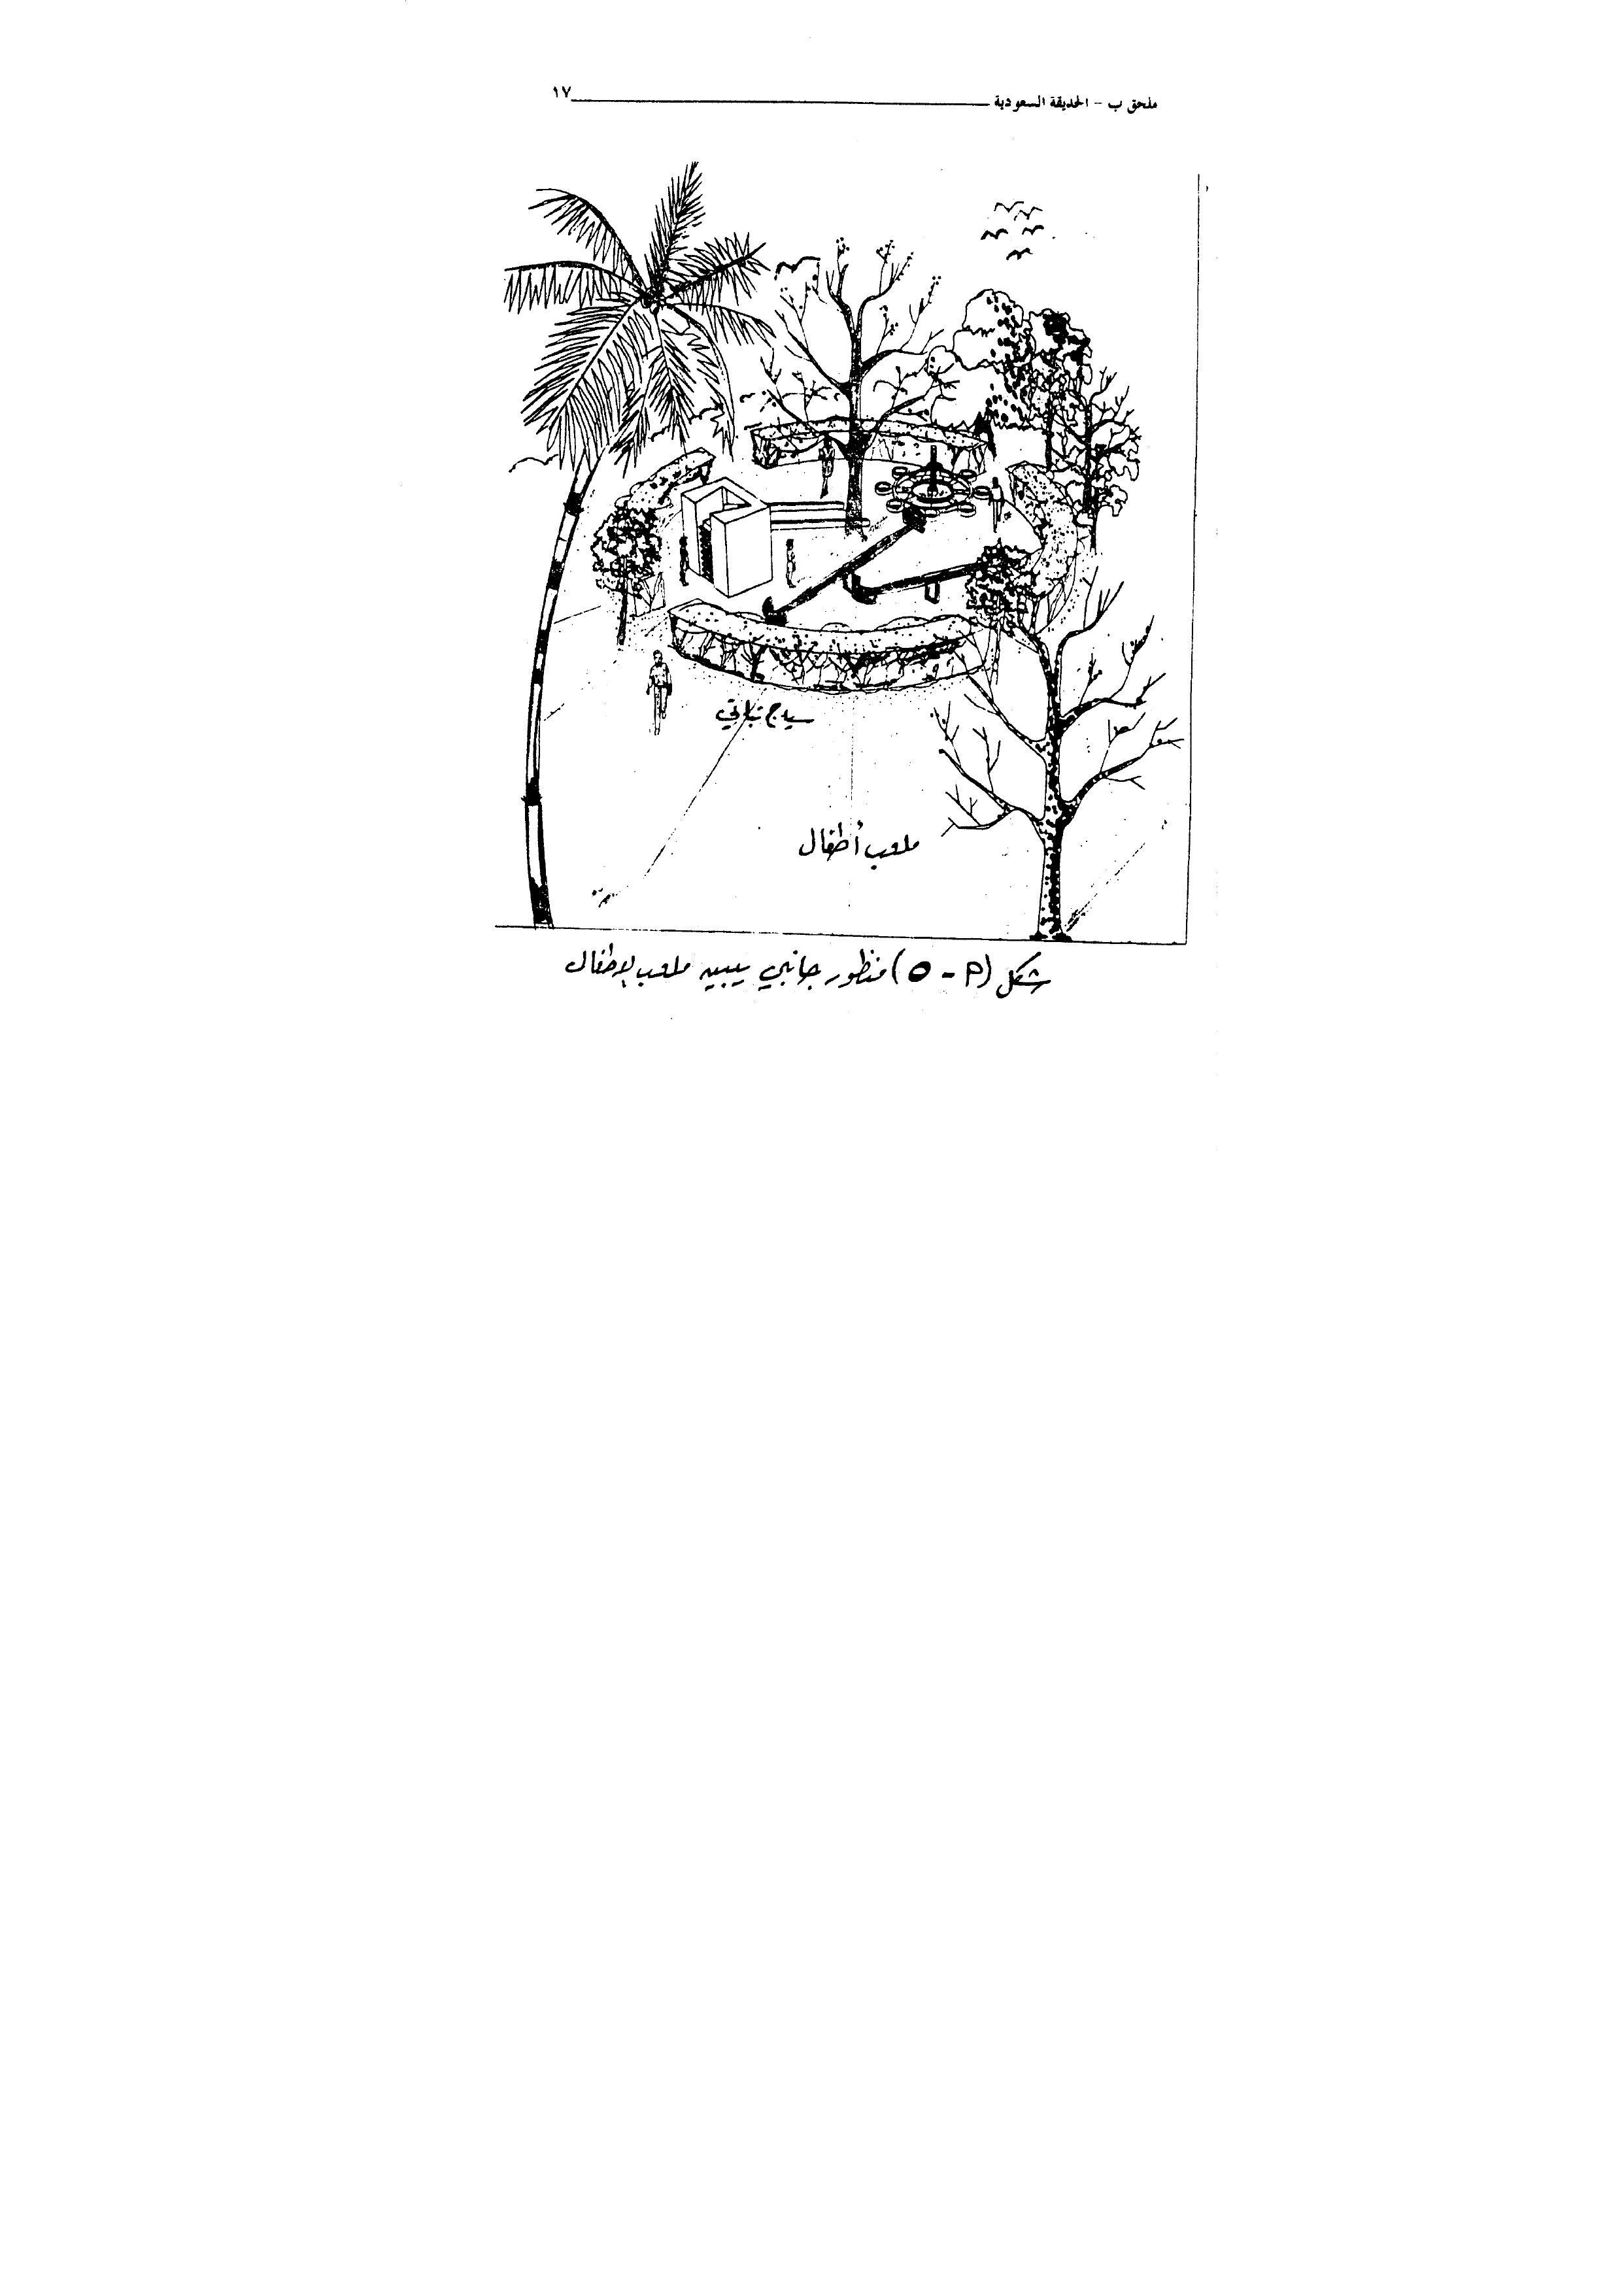 ملحق ب - الحديقة السعودية ١٧
سياج نباتي
ملعب أطفال
شكل (م - ٥) منظور جانبي يبين ملعب الاطفال